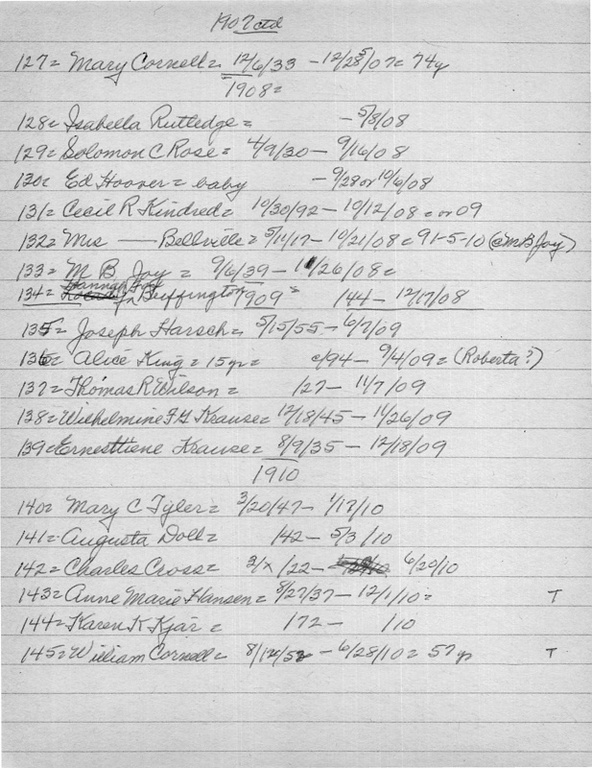 1907 ctd
127= Mary Cornell= 12/6/33 - 12/28/07= 74y
1908=
128= Isabella Rutledge= - 5/8/08
129= Solomon C Rose= 4/9/30 - 9/16/08
130= Ed Hoover= baby - 9/28 or 10/6/08
131= Cecil R Kindred= 10/30/92 - 10/12/08= or 09
132= Mrs — Bellville= 5/11/17 - 10/21/08= 91-5-10 (c M B Joy)
133= M B Joy = 9/6/39 - 11/26/08=
134= Hannah Buffington /44 - 12/17/08
1909=
135= Joseph Harsch= 5/15/55 - 6/7/09
136= Alice King= 15yr= c/94 - 9/4/09= (Roberta?)
137= Thomas R Wilson= /27 - 11/7/09
138= Wilhelmine F G Krause= 12/18/45 - 11/26/09
139= Ernesttiene Krause= 8/9/35 - 12/18/09
1910
140= Mary C Tyler= 3/20/47 - 1/17/10
141= Augusta Doll= /42 - 5/3/10
142= Charles Cross= 3/x/22 - 6/20/10
143= Anne Marie Hansen= 8/27/37 - 12/1/10= T
144= Karen K Kjar= /72 - /10
145= William Cornell= 8/12/52 - 6/28/10= 57yr T